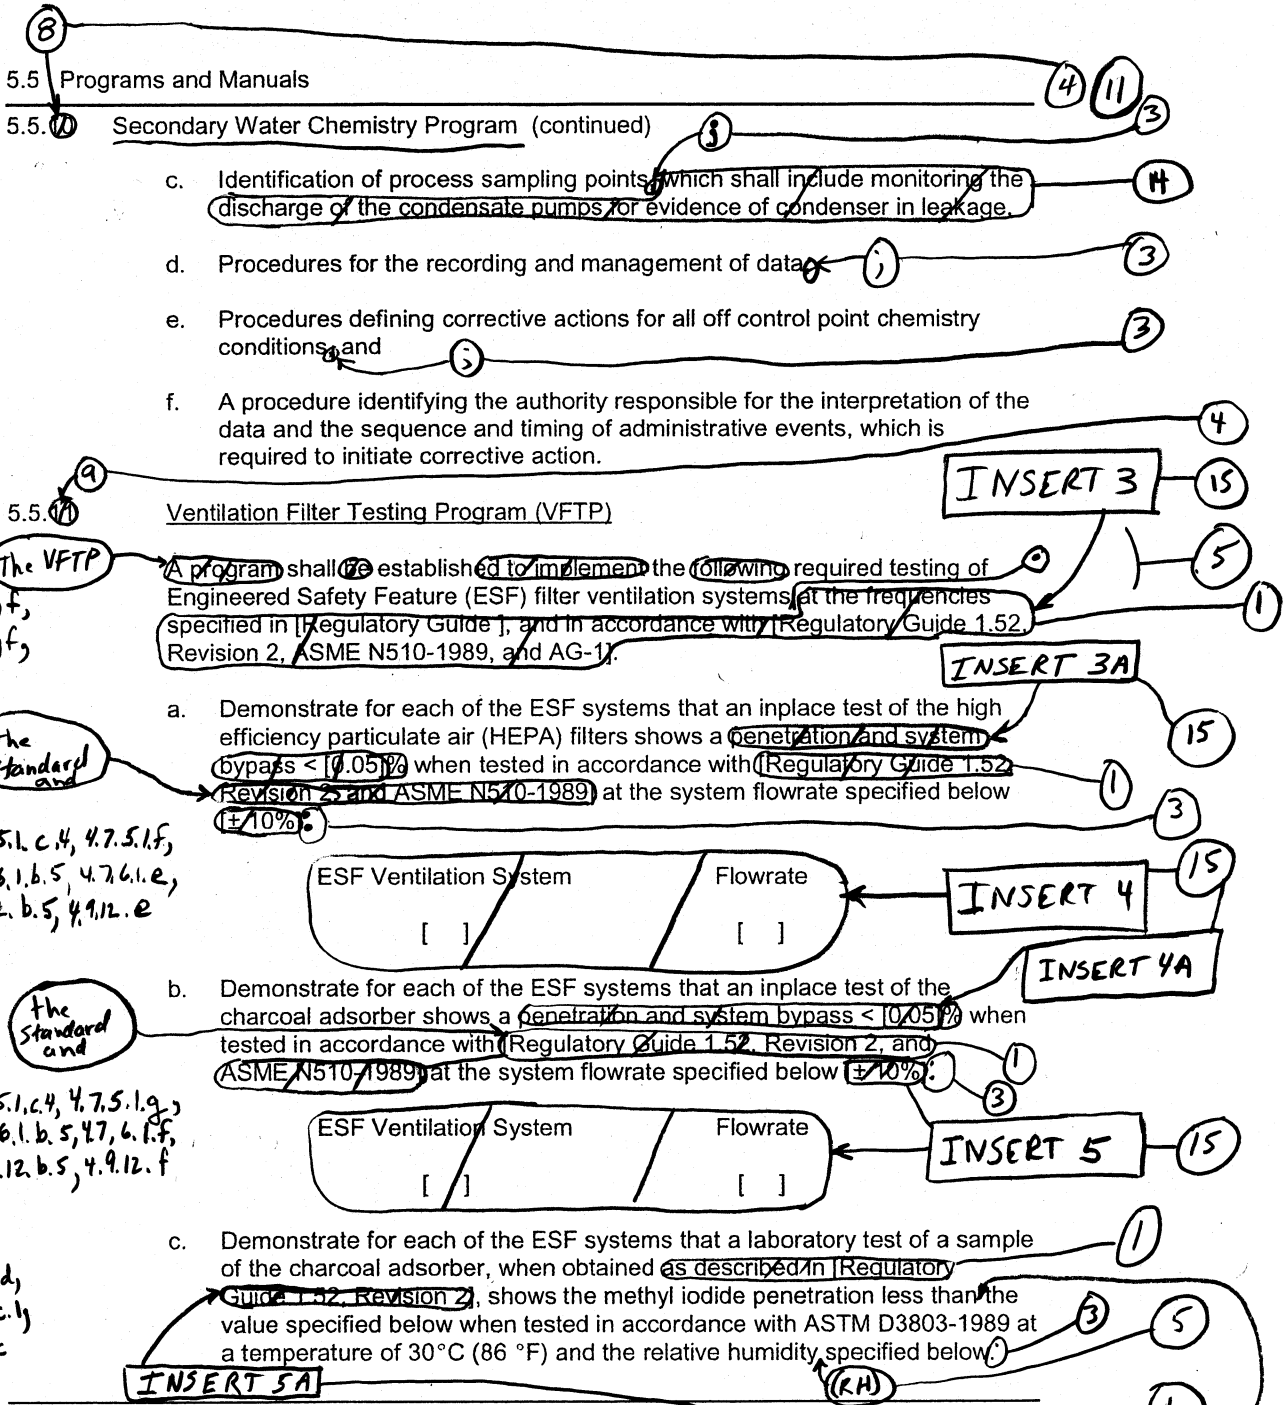 8
5.5 Programs and Manuals
4 11
5.5.10 Secondary Water Chemistry Program (continued)
; 3
c. Identification of process sampling points, which shall include monitoring the
discharge of the condensate pumps for evidence of condenser in leakage,
14
d. Procedures for the recording and management of data, ; 3
e. Procedures defining corrective actions for all off control point chemistry
conditions, and ; 3
f. A procedure identifying the authority responsible for the interpretation of the
data and the sequence and timing of administrative events, which is
required to initiate corrective action.
4
9
INSERT 3 15
5.5.11 Ventilation Filter Testing Program (VFTP)
The VFTP
A program shall be established to implement the following required testing of
Engineered Safety Feature (ESF) filter ventilation systems at the frequencies
specified in [Regulatory Guide ], and in accordance with [Regulatory Guide 1.52,
Revision 2, ASME N510-1989, and AG-1].
. 5
1
f,
f,
INSERT 3A
15
a. Demonstrate for each of the ESF systems that an inplace test of the high
efficiency particulate air (HEPA) filters shows a penetration and system
bypass < [0.05]% when tested in accordance with [Regulatory Guide 1.52,
Revision 2, and ASME N510-1989] at the system flowrate specified below
[± 10%]:
the
standard
and
1
3
5.1.c.4, 4.7.5.1.f,
6.1.b.5, 4.7.6.1.e,
2.b.5, 4.9.12.e
ESF Ventilation System Flowrate
[ ] [ ]
INSERT 4 15
INSERT 4A
b. Demonstrate for each of the ESF systems that an inplace test of the
charcoal adsorber shows a penetration and system bypass < [0.05]% when
tested in accordance with [Regulatory Guide 1.52, Revision 2, and
ASME N510-1989] at the system flowrate specified below [± 10%]:
the
standard
and
1
3
5.1.c.4, 4.7.5.1.g,
6.1.b.5, 4.7.6.1.f,
.12.b.5, 4.9.12.f
ESF Ventilation System Flowrate
[ ] [ ]
INSERT 5 15
c. Demonstrate for each of the ESF systems that a laboratory test of a sample
of the charcoal adsorber, when obtained as described in [Regulatory
Guide 1.52, Revision 2], shows the methyl iodide penetration less than the
value specified below when tested in accordance with ASTM D3803-1989 at
a temperature of 30°C (86 °F) and the relative humidity specified below.
1
3 5
d,
c.1,
c
INSERT 5A
(RH)